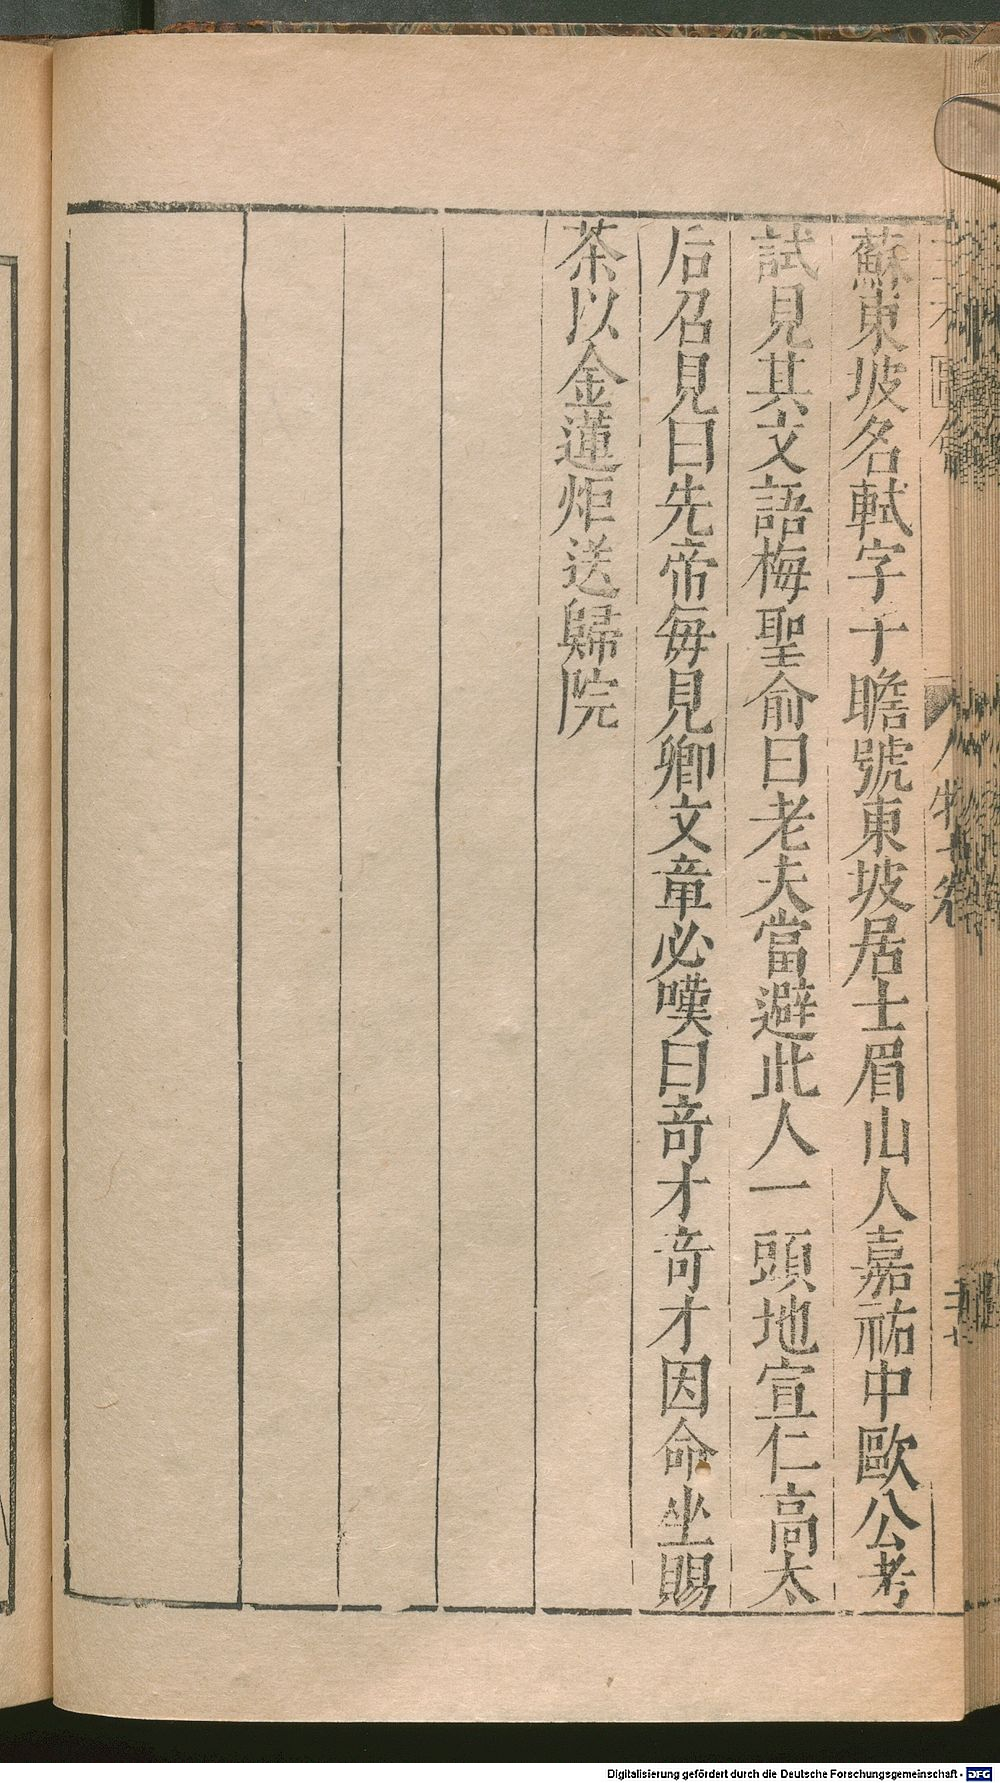 蘇東坡名軾字子瞻號東坡居士眉山人嘉祐中歐公考
試見其文語梅聖俞曰老夫當避此人一頭地宣仁高太
后召見曰先帝每見卿文章必嘆曰竒才竒才因命坐賜
茶以金蓮炬送歸院
人物七卷
Digitalisierung gefördert durch die Deutsche Forschungsgemeinschaft - DFG